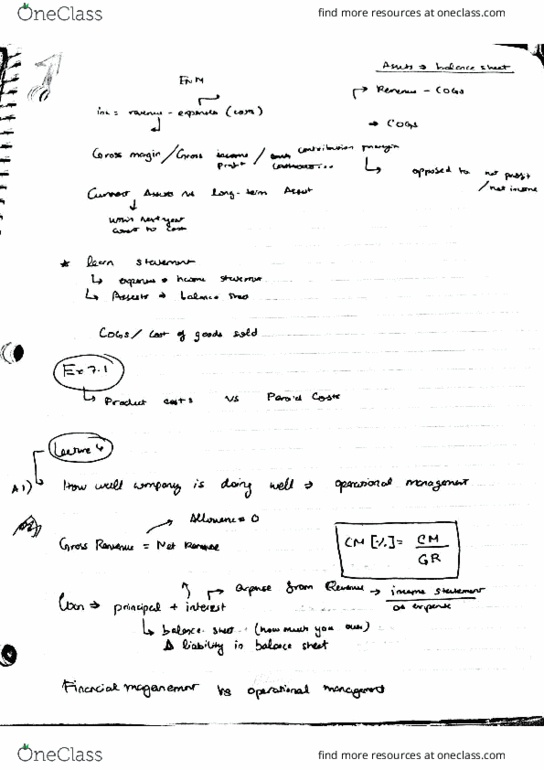 OneClass
find more resources at oneclass.com
Assets → balance sheet
Revenue - COGS
inc = revenue - expenses (costs)
→ COGS
Gross margin / Gross income / contribution margin
profit
opposed to net profit
/ net income
Current Assets vs long-term Asset
★ learn statement
↳ expense → income statement
↳ Assests → balance sheet
COGS / cost of goods sold
Ex 7.1
↳ Product costs vs Period Costs
Lecture 4
A1) How well company is doing well → operational management
Allowence = 0
Gross Revenue = Net Revenue
CM [%] = CM
GR
Loan → principal + interest
expense from Revenue → income statement
as expense
↳ balance sheet (how much you owe)
Δ liability in balance sheet
Financial magenement vs operational management
OneClass
find more resources at oneclass.com